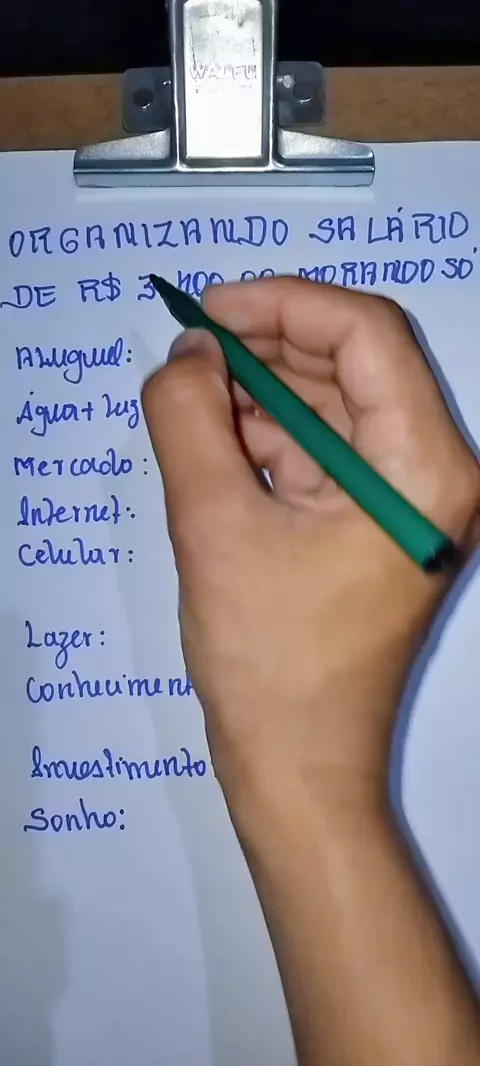 ORGANIZANDO SALÁRIO
DE R$ MORANDO SÓ
Aluguel:
Água + Luz
Mercado:
Internet:
Celular:
Lazer:
Investimento
Sonho: